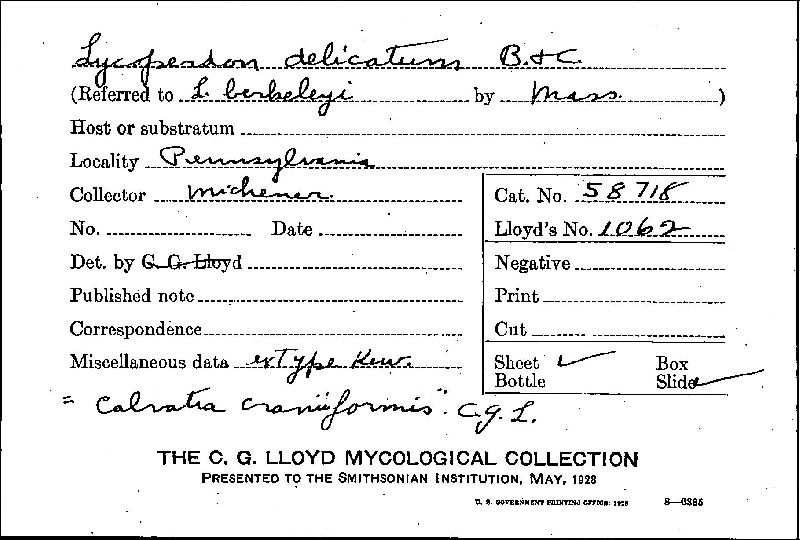 Lycoperdon delicatum B. & C.
(Referred to L. berkeleyi by Mass.)
Host or substratum
Locality Pennsylvania
Collector Michener.
Cat. No. 58718
No. Date
Lloyd's No. 1062
Det. by C. G. Lloyd
Negative
Published note
Print
Correspondence
Cut
Miscellaneous data ex Type Kew.
Sheet ✓ Box
Bottle Slide ✓
= "Calvatia craniiformis". C.G.L.
THE C. G. LLOYD MYCOLOGICAL COLLECTION
PRESENTED TO THE SMITHSONIAN INSTITUTION, MAY, 1928
U. S. GOVERNMENT PRINTING OFFICE: 1928 8—6385